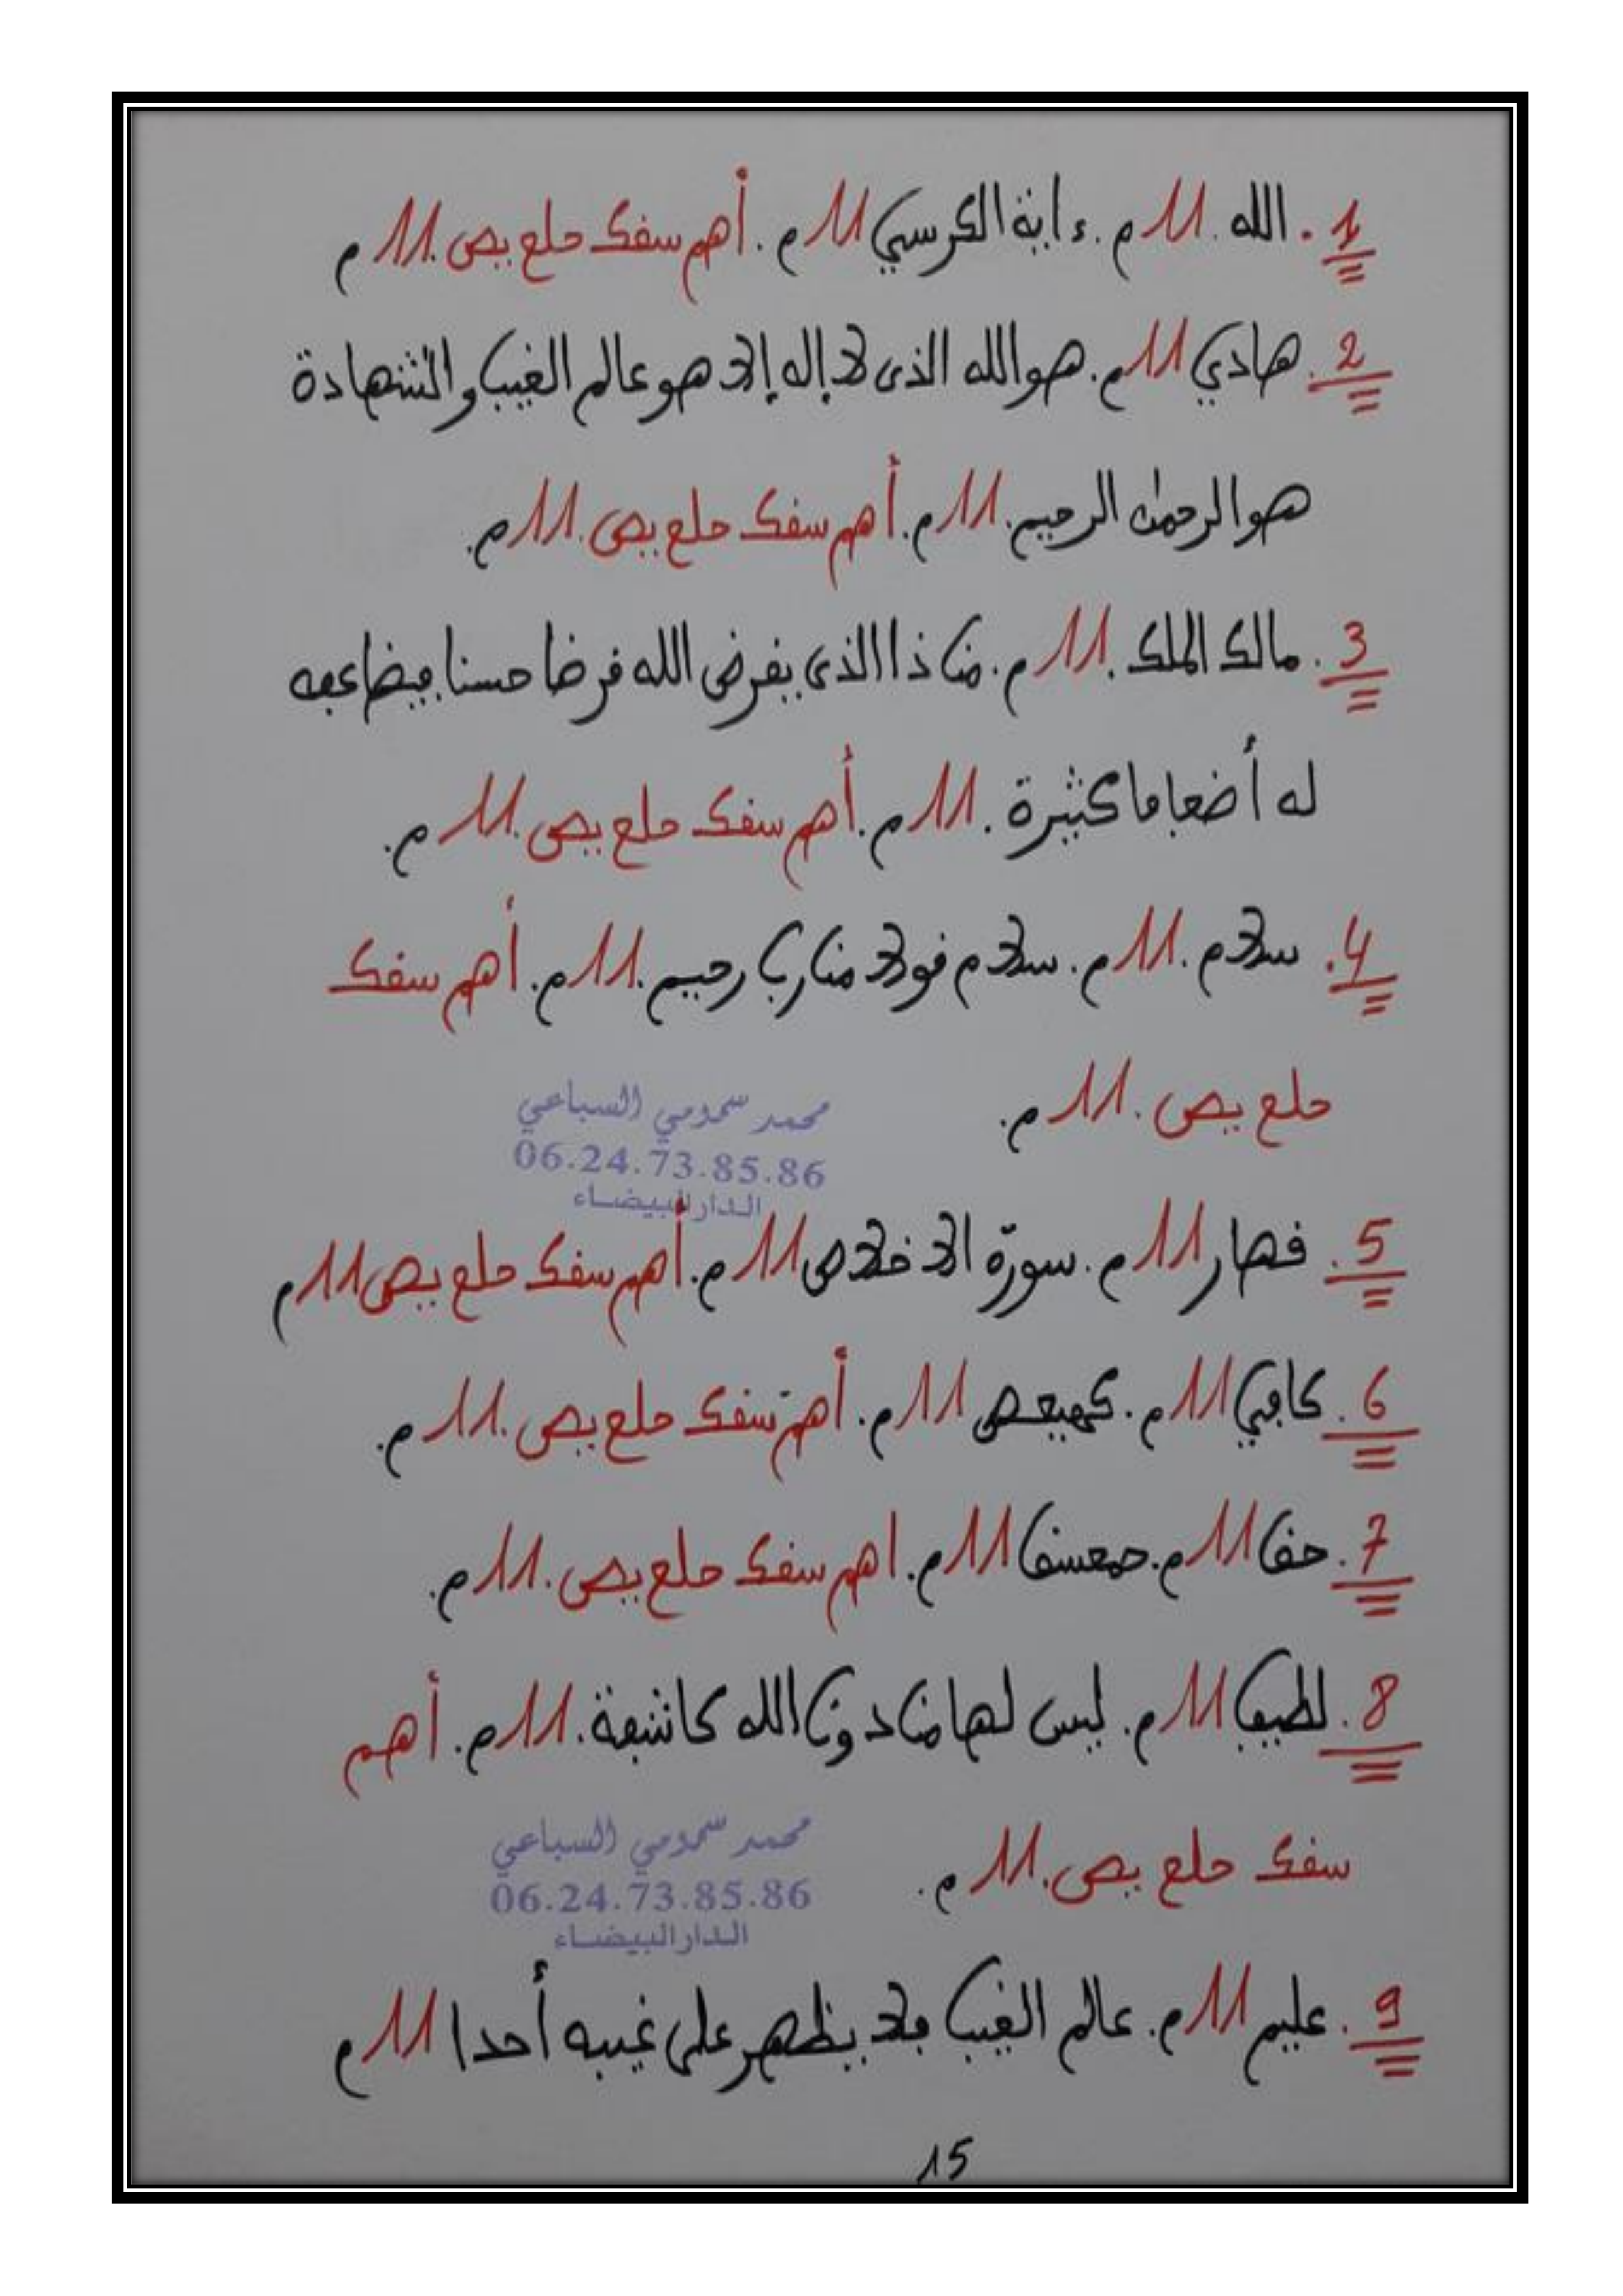 1. الله. 11 م. ءاية الكرسي 11 م. أهم سفك حلع يص. 11 م
2. هادي 11 م. هو الله الذى لا إله إلا هو عالم الغيب والشهادة
هو الرحمن الرحيم. 11 م. أهم سفك حلع يص. 11 م.
3. مالك الملك. 11 م. من ذا الذى يقرض الله قرضا حسنا فيضاعفه
له أضعافا كثيرة. 11 م. أهم سفك حلع يص. 11 م.
4. سلام. 11 م. سلام قولا من رب رحيم. 11 م. أهم سفك
حلع يص. 11 م.
محمد سمومي السباعي
06.24.73.85.86
الدار البيضاء
5. قهار 11 م. سورة الاخلاص 11 م. أهم سفك حلع يص 11 م
6. كافي 11 م. كهيعص 11 م. أهم سفك حلع يص. 11 م.
7. حق 11 م. حمعسق 11 م. اهم سفك حلع يص. 11 م.
8. لطيف 11 م. ليس لها من دون الله كاشفة. 11 م. أهم
سفك حلع يص. 11 م.
محمد سمومي السباعي
06.24.73.85.86
الدار البيضاء
9. عليم 11 م. عالم الغيب فلا يظهر على غيبه أحدا 11 م
15